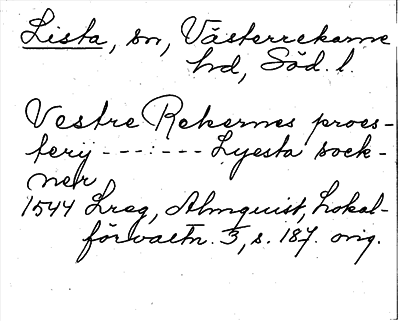 Lista, sn, Västerrekarne
hd, Söd. l.
Vestre Rekernes proes-
terij ---:--- Lyesta sock-
ner
1544 Lreg, Almquist, Lokal-
förvaltn. 3, s. 187. orig.